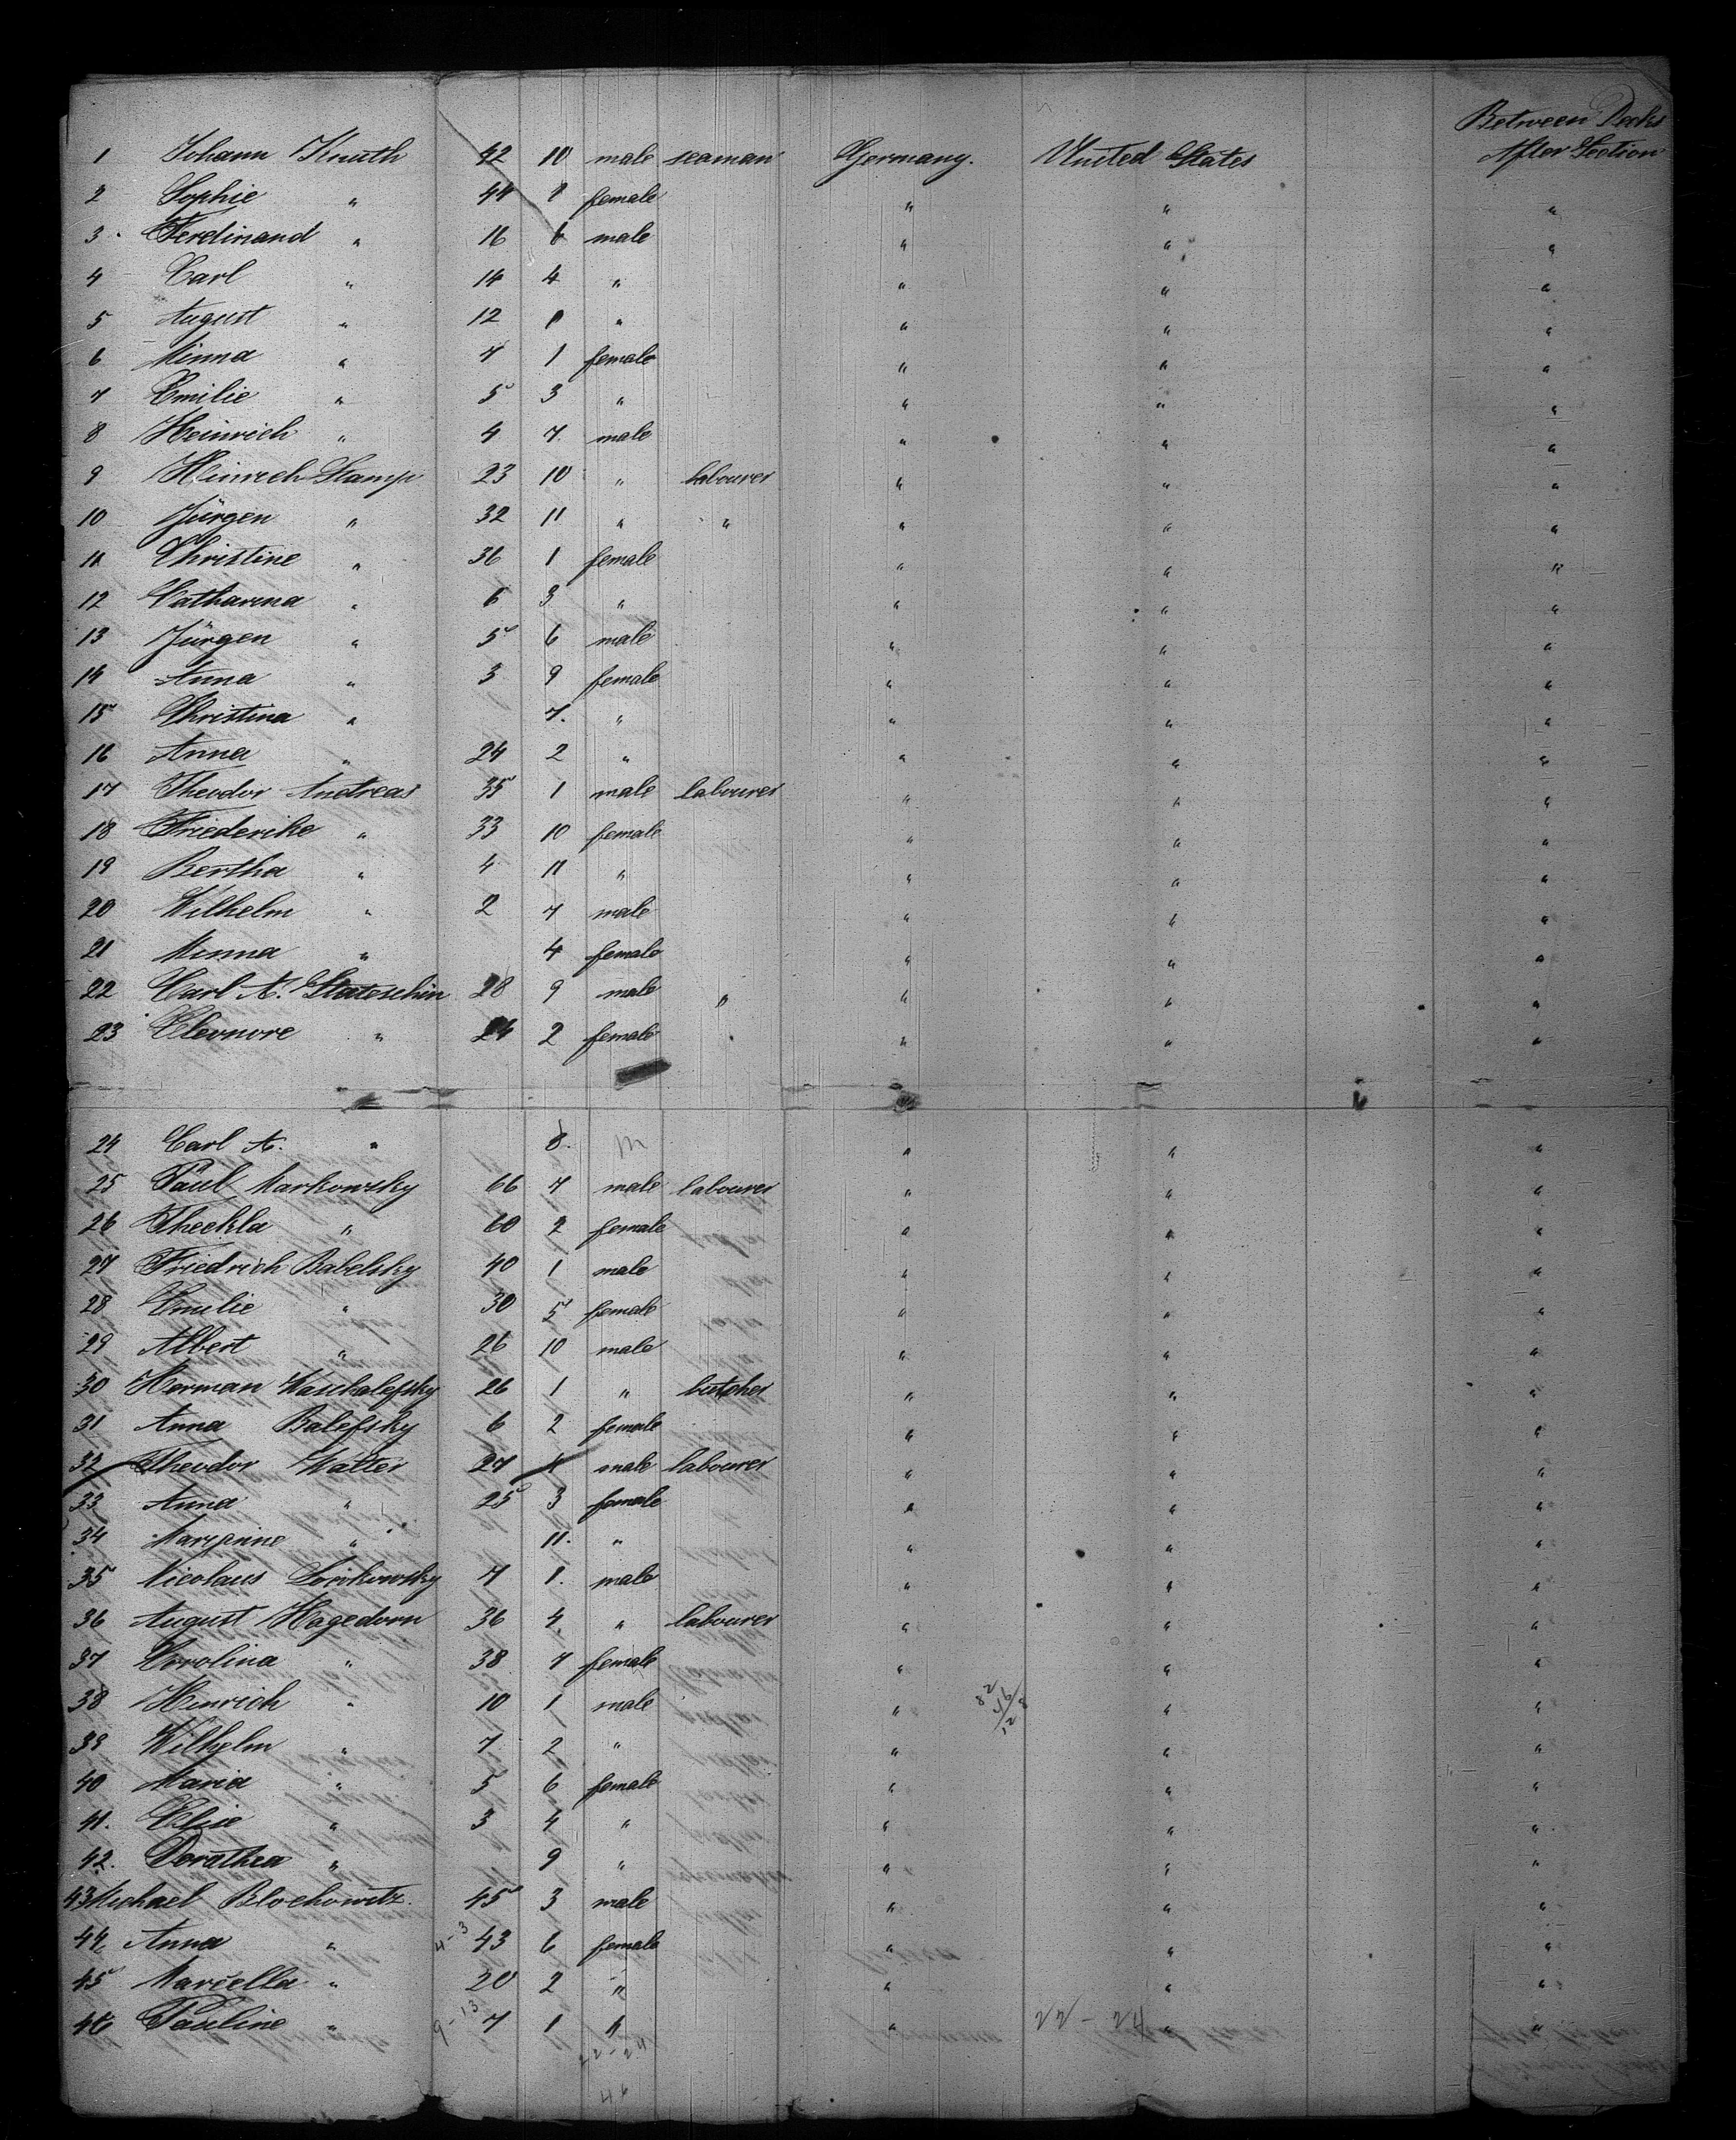 Between Decks
1 Johann Knuth 42 10 male seaman Germany. United States After Section
2 Sophie " 44 8 female " " "
3 Ferdinand " 16 6 male " " "
4 Carl " 14 4 " " " "
5 August " 12 1 " " " "
6 Minna " 7 1 female " " "
7 Emilie " 5 3 " " " "
8 Heinrich " 4 7 male " " "
9 Heinrich Stamp 23 10 " labourer " " "
10 Jürgen " 32 11 " " " " "
11 Christine " 36 1 female " " "
12 Catharina " 6 3 " " " "
13 Jürgen " 5 6 male " " "
14 Anna " 3 9 female " " "
15 Christina " 7. " " " "
16 Anna " 24 2 " " " "
17 Theodor Andreas 35 1 male labourer " " "
18 Friederike " 33 10 female " " "
19 Bertha " 4 11 " " " "
20 Wilhelm " 2 7 male " " "
21 Minna " 4 female " " "
22 Carl A. 28 9 male " " " "
23 Eleonore " 24 2 female " " "
24 Carl A. " 8. m " " "
25 Paul Markowsky 66 7 male labourer " " "
26 Theckla " 60 2 female " " "
27 Friedrich Babelsky 40 1 male " " "
28 Emilie " 30 5 female " " "
29 Albert " 26 10 male " " "
30 Herman 26 1 " butcher " " "
31 Anna Balefsky 6 2 female " " "
32 Theodor Walter 27 male labourer " " "
33 Anna " 25 3 female " " "
34 " 11. " " " "
35 Nicolaus 7 1. male " " "
36 August Hagedorn 36 4 " labourer " " "
37 Carolina " 38 7 female " " "
38 Hinrich " 10 1 male " " "
39 Wilhelm " 7 2 " " " "
40 Maria " 5 6 female " " "
41. Elise " 3 4 " " " "
42. Dorathea " 9 " " " "
43 Michael Blochowitz. 45 3 male " " "
44 Anna " 43 6 female " " "
45 Mariella " 20 2 " " " "
46 Pauline " 7 1 " " " "
22-24
46